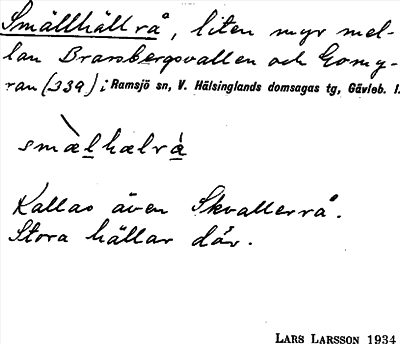 Smällhällrå, liten myr mel-
lan Bransbergsvallen och Gomy-
ran (339); Ramsjö sn, V. Hälsinglands domsagas tg, Gävleb. l.
smæ̀lhælrå
Kallas även Skvallerrå.
Stora hällar där.
LARS LARSSON 1934